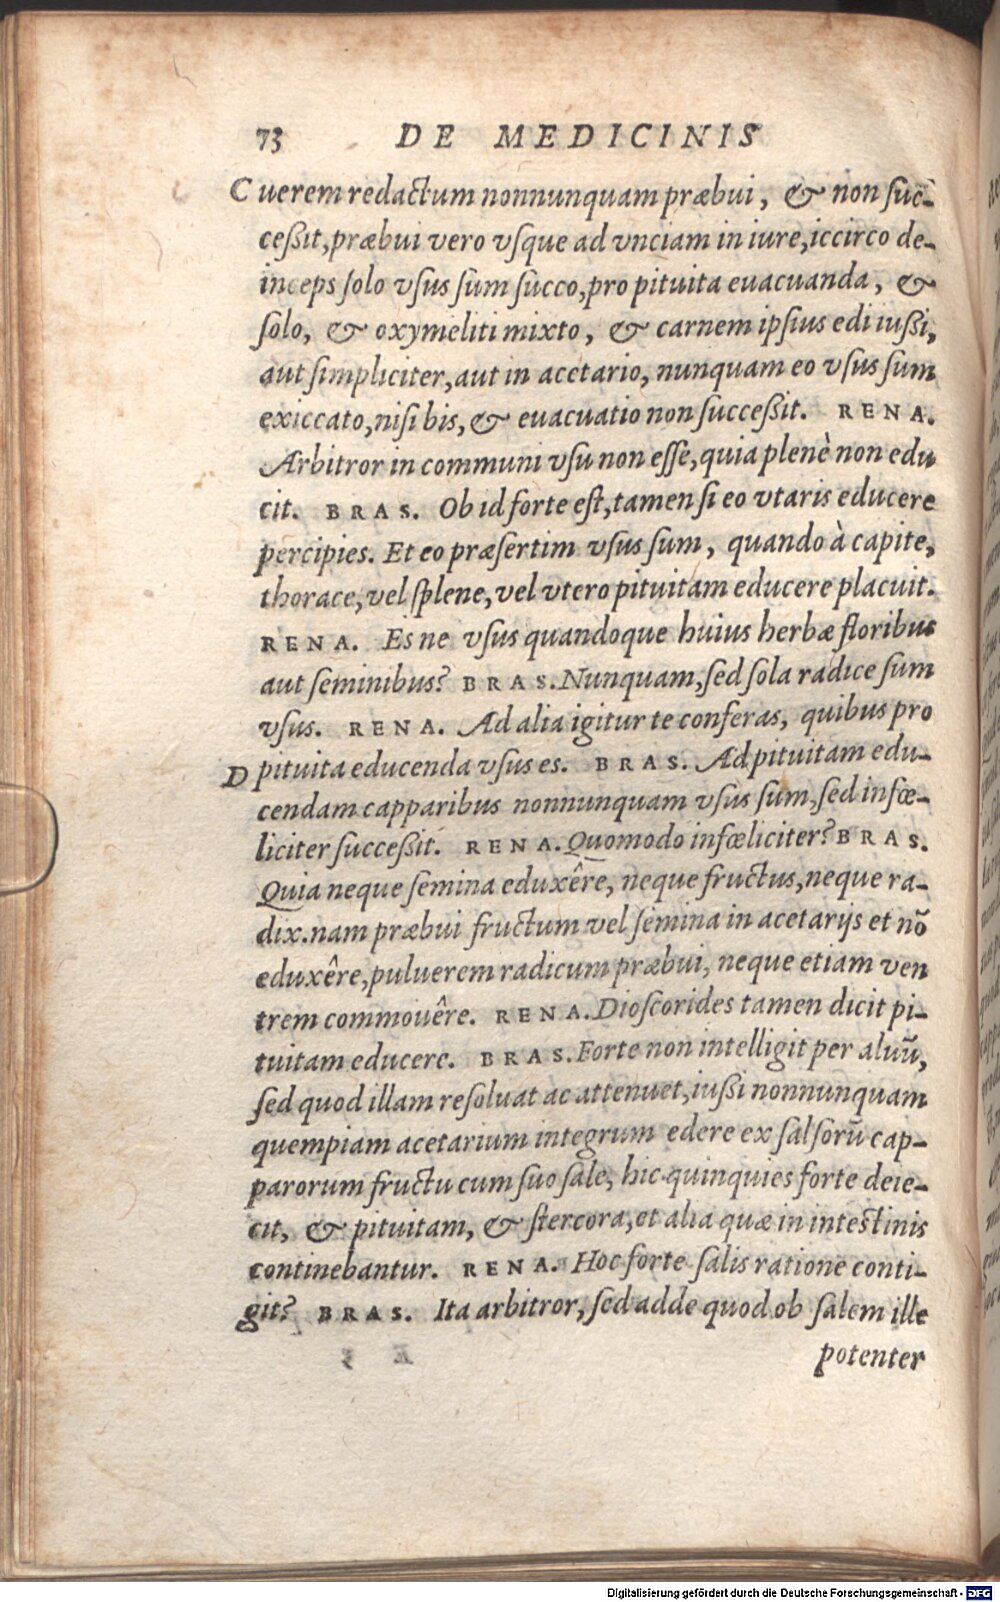 73 DE MEDICINIS
C uerem redactum nonnunquam præbui, & non suc-
ceßit, præbui vero vsque ad vnciam in iure, iccirco de-
inceps solo vsus sum succo, pro pituita euacuanda, &
solo, & oxymeliti mixto, & carnem ipsius edi iußi,
aut simpliciter, aut in acetario, nunquam eo vsus sum
exiccato, nisi bis, & euacuatio non succeßit. RENA.
Arbitror in communi vsu non esse, quia plenè non edu
cit. BRAS. Ob id forte est, tamen si eo vtaris educere
percipies. Et eo præsertim vsus sum, quando à capite,
thorace, vel splene, vel vtero pituitam educere placuit.
RENA. Es ne vsus quandoque huius herbæ floribus
aut seminibus? BRAS. Nunquam, sed sola radice sum
vsus. RENA. Ad alia igitur te conferas, quibus pro
D pituita educenda vsus es. BRAS. Ad pituitam edu-
cendam capparibus nonnunquam vsus sum, sed infœ-
liciter succeßit. RENA. Quomodo infœliciter? BRAS.
Quia neque semina eduxêre, neque fructus, neque ra-
dix. nam præbui fructum vel semina in acetarijs et nō
eduxêre, puluerem radicum præbui, neque etiam ven
trem commouêre. RENA. Dioscorides tamen dicit pi-
tuitam educere. BRAS. Forte non intelligit per aluū,
sed quod illam resoluat ac attenuet, iußi nonnunquam
quempiam acetarium integrum edere ex salsorū cap-
parorum fructu cum suo sale, hic quinquies forte deie-
cit, & pituitam, & stercora, et alia quæ in intestinis
continebantur. RENA. Hoc forte salis ratione conti-
git? BRAS. Ita arbitror, sed adde quod ob salem ille
potenter
Digitalisierung gefördert durch die Deutsche Forschungsgemeinschaft - DFG